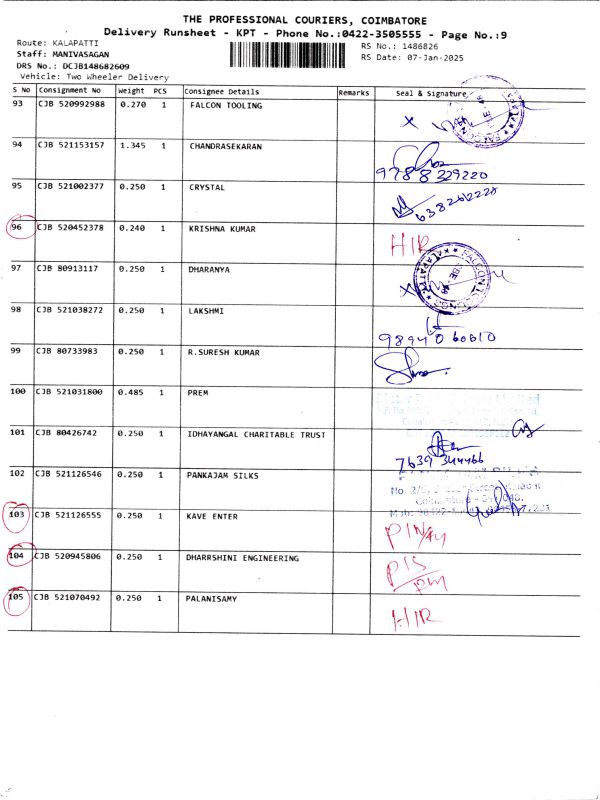 THE PROFESSIONAL COURIERS, COIMBATORE
Delivery Runsheet - KPT - Phone No.:0422-3505555 - Page No.:9
Route: KALAPATTI
Staff: MANIVASAGAN
DRS No.: DCJB148682609
Vehicle: Two Wheeler Delivery
RS No.: 1486826
RS Date: 07-Jan-2025
S No Consignment No Weight PCS Consignee Details Remarks Seal & Signature
93 CJB 520992988 0.270 1 FALCON TOOLING
94 CJB 521153157 1.345 1 CHANDRASEKARAN
9788329220
95 CJB 521002377 0.250 1 CRYSTAL
96 CJB 520452378 0.240 1 KRISHNA KUMAR HIR
97 CJB 80913117 0.250 1 DHARANYA
98 CJB 521038272 0.250 1 LAKSHMI
9894060610
99 CJB 80733983 0.250 1 R.SURESH KUMAR
100 CJB 521031800 0.485 1 PREM
101 CJB 80426742 0.250 1 IDHAYANGAL CHARITABLE TRUST
7639344466
102 CJB 521126546 0.250 1 PANKAJAM SILKS
103 CJB 521126555 0.250 1 KAVE ENTER
104 CJB 520945806 0.250 1 DHARRSHINI ENGINEERING
105 CJB 521070492 0.250 1 PALANISAMY HIR